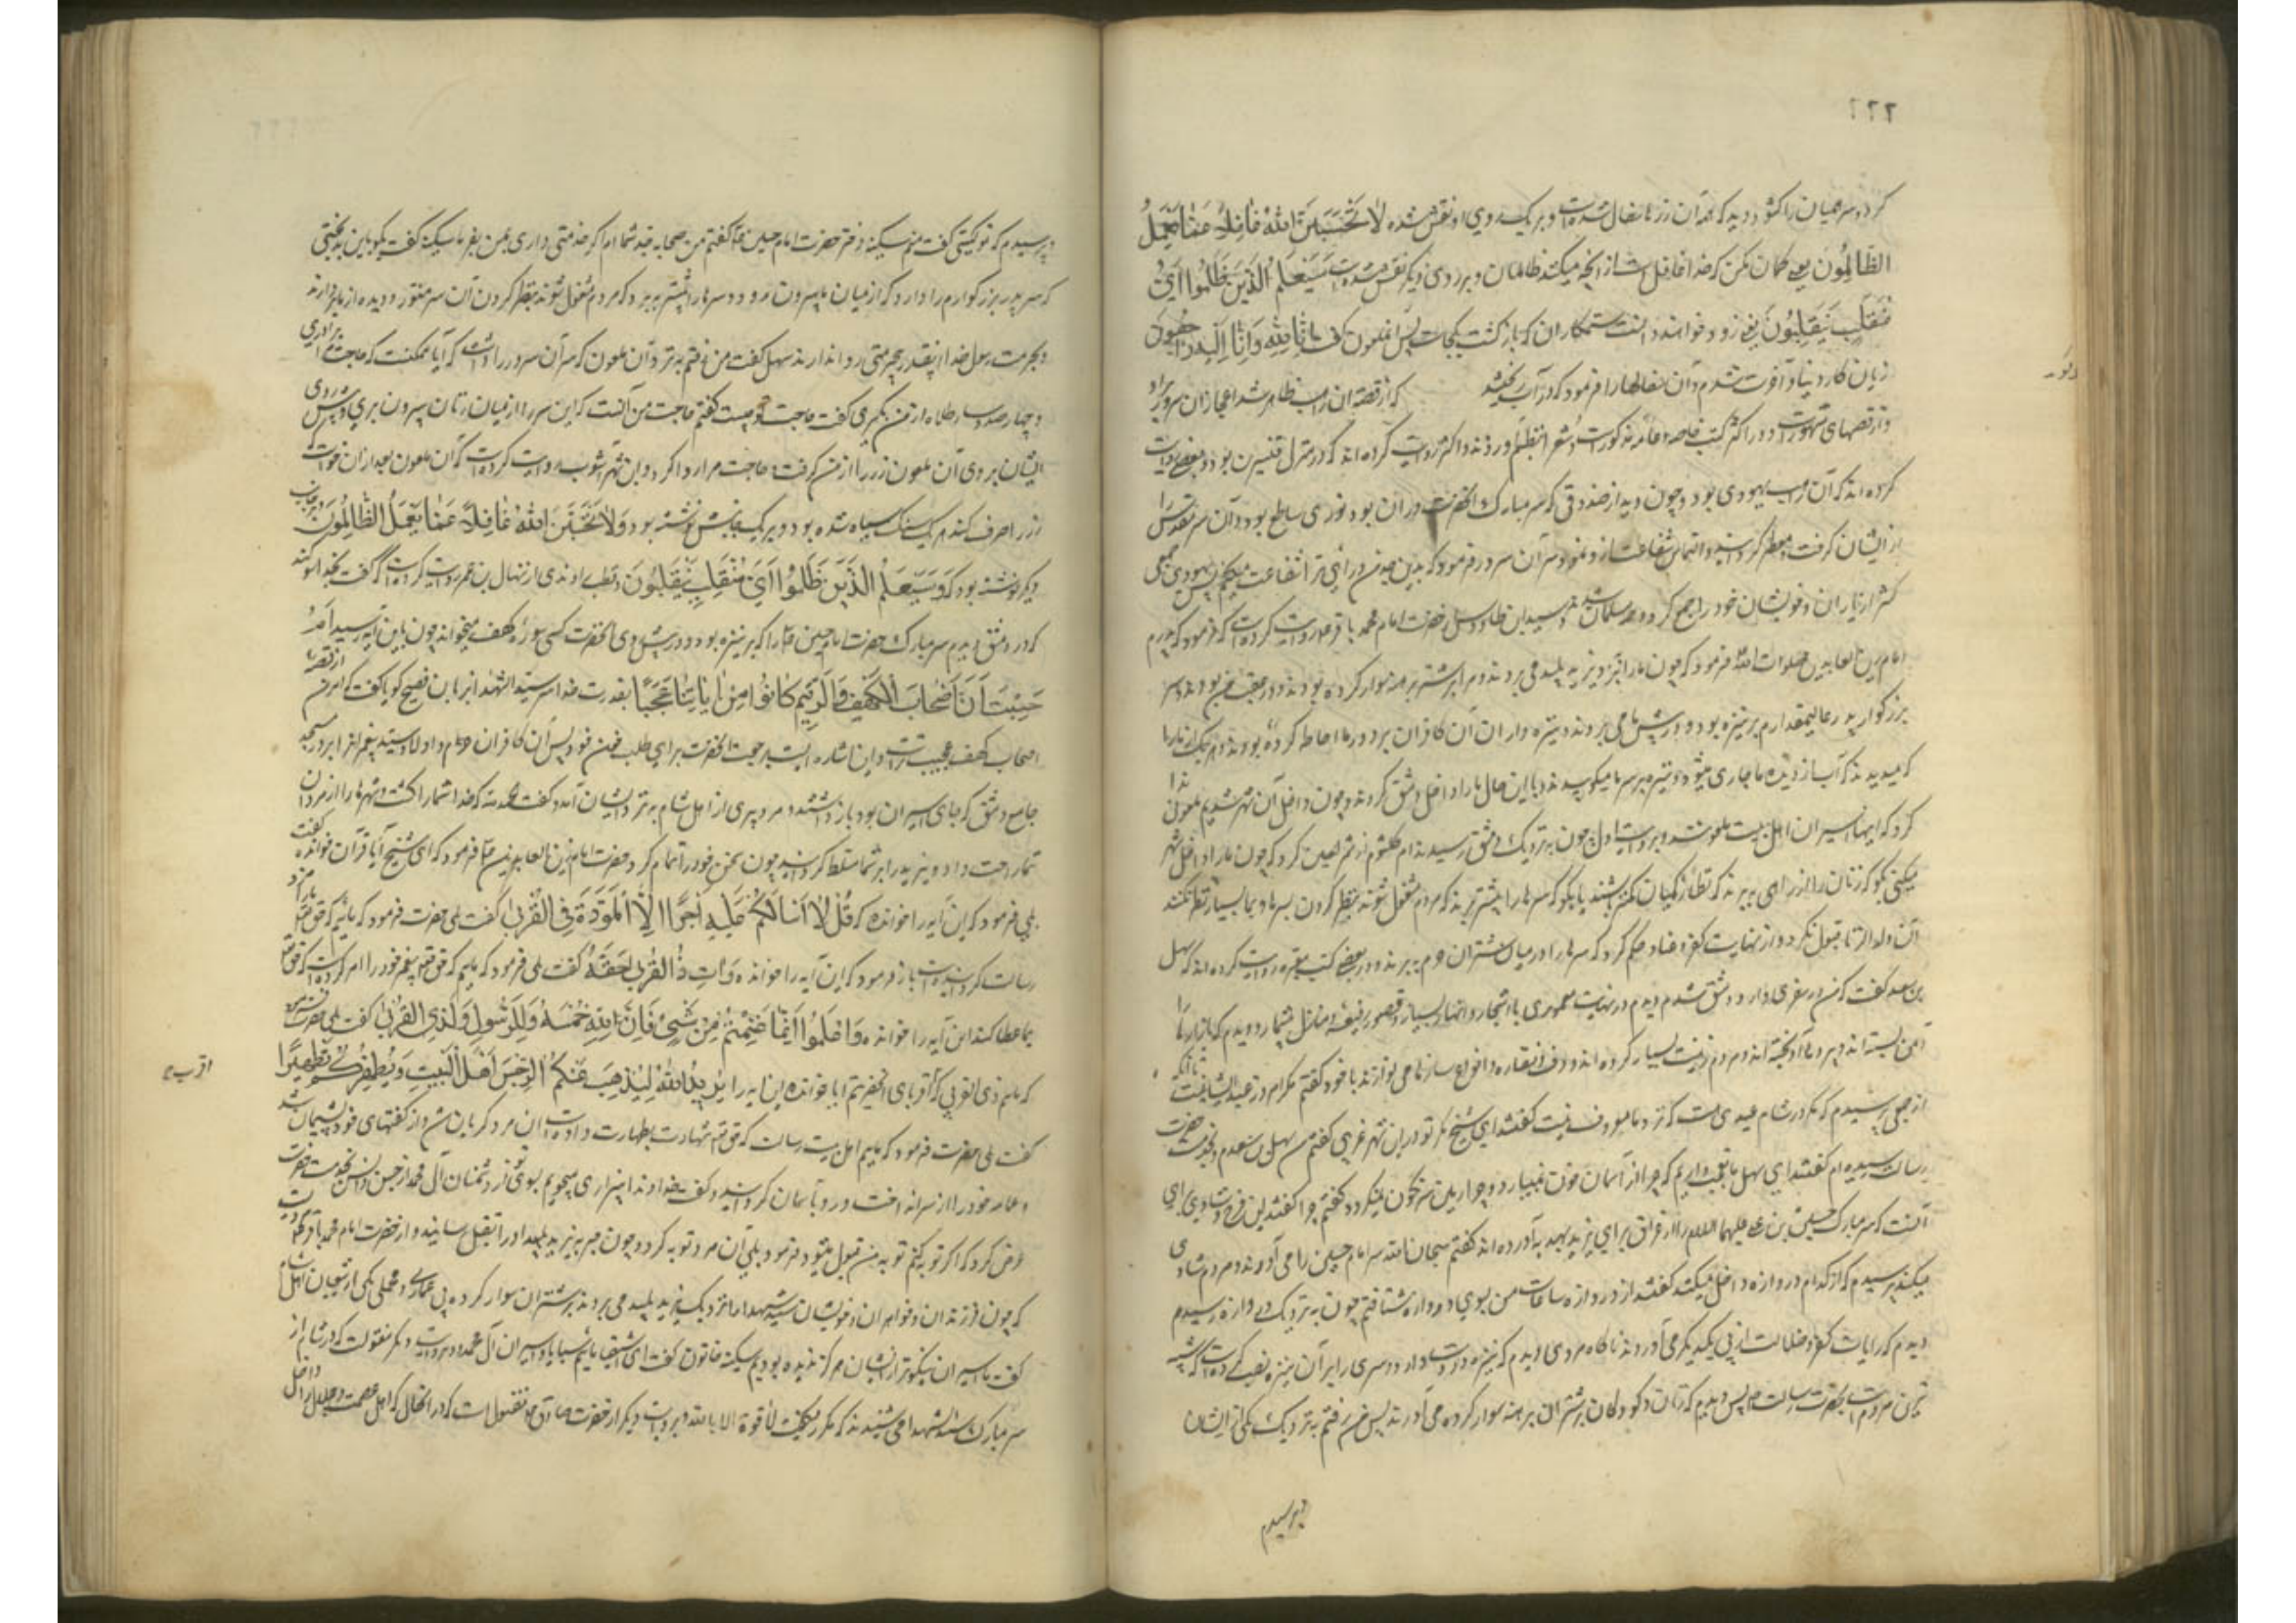 ۲۲۲
کرد و سر همیان را کشود دید که همه آن زرها سفال شده است و بر یک روی او نقش شده لا تَحْسَبَنَّ اللهَ غافِلاً عَمّا یَعْمَلُ
الظّالِمُونَ یعنی کمان مکن که خدا غافل است از انچه میکنند ظالمان و بر روی دیکر نقش شده است سَیَعْلَمُ الَّذینَ ظَلَمُوا اَیَّ
مُنْقَلَبٍ یَنْقَلِبُونَ یعنی زود خواهند دانست ستمکاران که بازکشت بکجاست پس آن ملعون کفت اِنّا لِلّهِ وَ اِنّا اِلَیْهِ راجِعُونَ
زیان کار دنیا و آخرت شدم و آن سفالها را فرمود که در آب ریختند
کرده اند که آن راهب یهودی بود و چون دید از صندوقی که سر مبارک آنحضرت در آن بود نوری ساطع بود و آن سر مقدس را
از ایشان کرفت و معطر کردانید و التماس شفاعت از او نمود سر آن سرور فرمود که بدین جدم در آئی تا ترا شفاعت میکنم پس یهودی جمعی
کثیر از یاران و خویشان خود را جمع کرد و همه مسلمان شدند و سید ابن طاوس از حضرت امام محمد باقر ع روایت کرده است که فرمود که پدرم
امام زین العابدین صلوات الله فرمود که چون ما را بنزد یزید پلید می بردند مرا بر شتر برهنه سوار کرده بودند و در عقب من بودند و سر
بزرکوار پدر عالیمقدارم بر نیزه بود و در پیش ما می بردند و نیزه داران آن کافران بر دور ما احاطه کرده بودند و هر یک از ما را
که میدیدند که آب از دیده ما جاری میشود نیزه بر سر ما میکوبیدند و با این حال ما را داخل دمشق کردند و چون داخل آن شهر شدیم ملعونی ندا
کرد که اینها اسیران اهل بیت ملعونند و بروایت اول چون به نزدیک دمشق رسیدند ام کلثوم از شمر لعین کرد که چون ما را داخل شهر
میکنی بکو که زنان را از راهی ببرند که نظارکیان کمتر باشند یا بکو که سرها را پیشتر برند که مردم مشغول شوند بنظر کردن بسرها و بما بسیار نظر نکنند
آن ولد الزنا قبول نکرد و از نهایت کفر و عناد حکم کرد که سرها را در میان شتران حرم ببرند و در بعضی کتب معتبره روایت کرده اند که سهل
بن سعد کفت که من در سفری وارد دمشق شدم دیدم در نهایت معموری با اشجار و انهار بسیار و قصور رفیعه و منازل بیشمار و دیدم که بازارها را
آئین بسته اند و پرده ها آویخته اند و مردم زینت بسیار کرده اند و دف و نقاره و انواع سازها می نوازند با خود کفتم مکر امروز عید ایشانست
از جمعی پرسیدم که مکر در شام عیدی هست که نزد ما معروف نیست کفتند ای شیخ مکر تو در این شهر غریبی کفتم من سهل بن سعدم و بخدمت حضرت
رسالت رسیده ام کفتند ای سهل ما تعجب داریم که چرا از آسمان خون نمیبارد و چرا زمین سرنکون نمیکردد کفتم چرا کفتند این فرح و شادی برای
آنست که سر مبارک حسین بن علی علیهما السلام را از عراق برای یزید بهدیه آورده اند کفتم سبحان الله سر امام حسین را می آورند و مردم شادی
میکنند پرسیدم که از کدام دروازه داخل میکنند کفتند از دروازه ساعات من بسوی دروازه شتافتم چون به نزدیک دروازه رسیدم
دیدم که رایات کفر و ضلالت از پی یکدیکر می آوردند ناکاه مردی دیدم که نیزه در دست دارد و سری را بر آن نیزه نصب کرده است که شبیه
ترین مردم است بحضرت رسالت ص پس دیدم که زنان و کودکان بر شتران برهنه سوار کرده می آورند پس من رفتم به نزدیک یکی از ایشان
پرسیدم
و پرسیدم که تو کیستی کفت من سکینه دختر حضرت امام حسین ع کفتم من از صحابه جد شما ام اکر خدمتی داری بمن بفرما سکینه کفت بکو باین بدبختی
که سر پدر بزرکوارم را دارد که از میان ما بیرون رود و سر ها را پیشتر ببرد که مردم مشغول شوند بنظر کردن آن سر منور و دیده از ما بردارند
و بحرمت رسول خدا اینقدر بیحرمتی روا ندارند سهل کفت من رفتم به نزد آن ملعون که سر آن سرور را داشت که آیا ممکنست که حاجت مرا برآری
و چهارصد دینار طلا از من بکیری کفت حاجت تو چیست کفتم حاجت من آنست که این سر را از میان زنان بیرون بری و پیش روی
ایشان بروی آن ملعون زر را از من کرفت و حاجت مرا روا کرد و ابن شهر آشوب روایت کرده است که آن ملعون بعد از آن خواست
زر را صرف کند هر یک سنک سیاه شده بود و بر یک جانبش نوشته بود وَلا تَحْسَبَنَّ اللهَ غافِلاً عَمّا یَعْمَلُ الظّالِمُونَ و بر جانب
دیکر نوشته بود که وَ سَیَعْلَمُ الَّذینَ ظَلَمُوا اَیَّ مُنْقَلَبٍ یَنْقَلِبُونَ و قطب راوندی از منهال بن عمرو روایت کرده است که کفت بخدا سوکند
که در دمشق دیدم سر مبارک حضرت امام حسین ع را که بر نیزه بود و در پیش روی آنحضرت کسی سوره کهف میخواند چون باین آیه رسید اَمْ
حَسِبْتَ اَنَّ اَصْحابَ الْکَهْفِ وَ الرَّقیمِ کانُوا مِنْ ایاتِنا عَجَباً بقدرت خدا سر سید الشهدا بزبان فصیح کویا کفت که امر من از قصه
اصحاب کهف عجیب تر است
جامع دمشق که جای اسیران بود باز داشتند و مرد پیری از اهل شام به نزد ایشان آمد و کفت الحمد لله که خدا شما را کشت و شهرها را از مردان
شما راحت داد و یزید را بر شما مسلط کردانید چون سخن خود را تمام کرد حضرت امام زین العابدین ع فرمود که ای شیخ آیا قرآن خوانده کفت
بلی فرمود که این آیه را خوانده که قُلْ لا اَسْألُکُمْ عَلَیْهِ اَجْراً اِلاَّ الْمَوَدَّةَ فِی الْقُرْبی کفت بلی حضرت فرمود که مائیم که حق تعالی
رسالت کردانیده است باز فرمود که این آیه را خوانده وَاتِ ذَا الْقُرْبی حَقَّهُ کفت بلی فرمود که مائیم که حق تعالی پیغمبر خود را امر کرده است که حق
بما عطا کند این آیه را خوانده وَ اعْلَمُوا اَنَّما غَنِمْتُمْ مِنْ شَیْءٍ فَاَنَّ لِلّهِ خُمُسَهُ وَ لِلرَّسُولِ وَ لِذِی الْقُرْبی کفت بلی حضرت
که مائیم ذی القربی که اقربای آنحضرتیم آیا خوانده این آیه را یُریدُ اللهُ لِیُذْهِبَ عَنْکُمُ الرِّجْسَ اَهْلَ الْبَیْتِ وَ یُطَهِّرَکُمْ تَطْهیراً
کفت بلی حضرت فرمود که مائیم اهل بیت رسالت که حق تعالی شهادت بطهارت داده است آن مرد کریان شد و از کفتهای خود پشیمان شد
و عمامه خود را از سر انداخت و رو بآسمان کردانید و کفت خداوندا بیزاری میجویم بسوی تو از دشمنان آل محمد از جن و انس پس بخدمت حضرت
عرض کرد که اکر توبه کنم توبه من قبول میشود فرمود بلی آن مرد توبه کرد و چون خبر به یزید پلید رسید او را بقتل رسانید و از حضرت امام محمد باقر
که چون فرزندان و خواهران و خویشان سید الشهدا را نزدیک یزید پلید می بردند بر شتران سوار کرده بی عماری و محمل یکی از شقیان اهل شام
کفت ما اسیران نیکوتر از ایشان هرکز ندیده بودیم سکینه خاتون کفت ای اشقیا مائیم سبایا و اسیران آل محمد
سر مبارک سید الشهدا می شنیدند که مکرر میکفت لا قوة الا بالله و بروایت دیکر از حضرت صادق منقولست که در آنحال که اهل عصمت و جلال را داخل